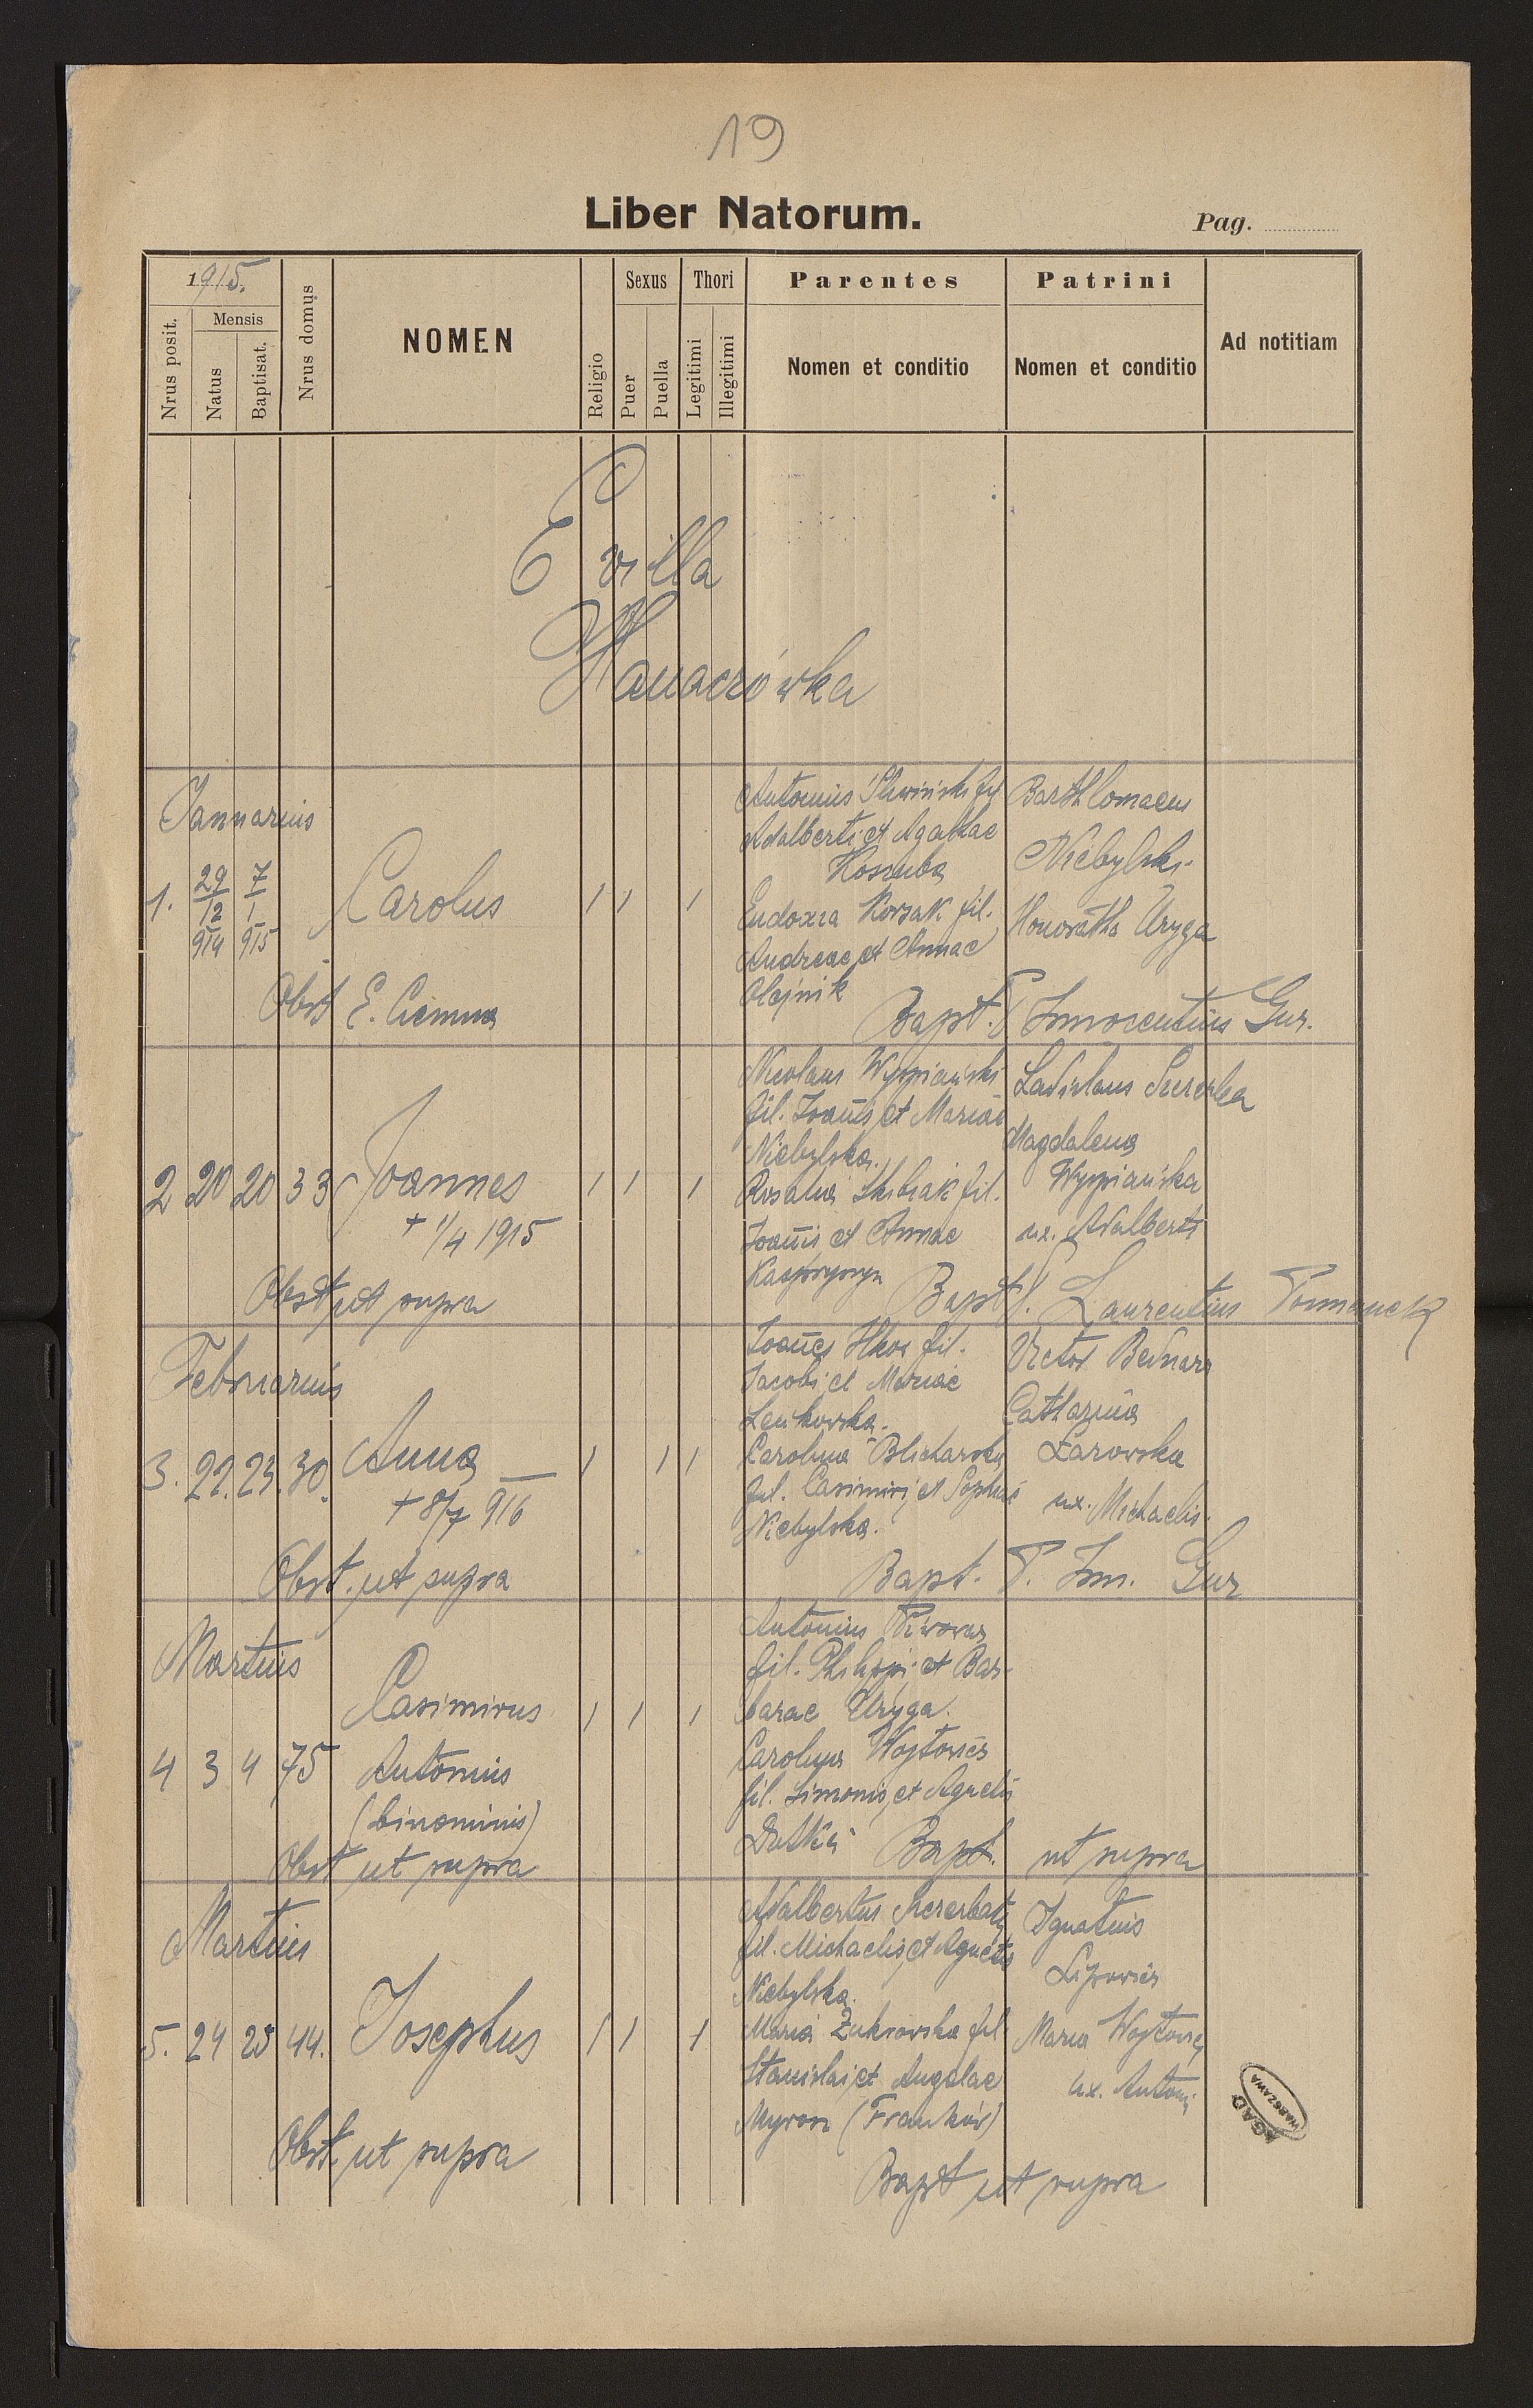 19
Liber Natorum.
Pag.
1915.
Mensis
Nrus posit.
Natus
Baptisat.
Nrus domus
NOMEN
Religio
Sexus
Puer
Puella
Thori
Legitimi
Illegitimi
Parentes
Nomen et conditio
Patrini
Nomen et conditio
Ad notitiam
E villa
Hanaczówka
Januarius
1.
29/12 914
7/1 915
Carolus
1 1 1
Antonius Śliwiński fil
Adalberti et Agathae
Koszuba
Eudoxia Korsak fil.
Andreae et Annae
Olejnik
Barthlomaeus
Niebylski.
Honoratha Uryga
Obst E. Ciemna
Bapt. P Innocentius Gur.
2 20 20 33 Joannes
+ 1/4 1915
1 1 1
Nicolaus Wyspiański
fil. Joanis et Mariae
Niebylska.
Rosalia Skibiak fil.
Joanis et Annae
Ladislaus Szczerba
Magdalena
Wyspiańska
ux. Adalberti
Obst ut supra
Bapt P. Laurentius
Februarius
3. 22. 23. 30. Anna
+ 8/7 916
1 1 1
Joanes fil.
Jacobi et Mariae
Lenkowska.
Carolina Blicharska
fil. Casimiri et Sophiae
Niebylska.
Victor Bednarz
Catharina
Żarowska
ux. Michaelis.
Obst. ut supra
Bapt. P. Inn. Gur
Martius
4 3 4 75
Casimirus
Antonius
(binominis)
1 1 1
Antonius Piwowar
fil. Philippi et Bar-
barae Uryga.
Carolina Wojtowicz
fil. Simonis et Agnetis
Dutka
Obst ut supra
Bapt. ut supra
Martius
5. 24 25 44. Josephus
1 1 1
Adalbertus Szczerbaty
fil. Michaelis et Agnetis
Niebylska.
Maria Żukrowska fil
Stanislai et Angelae
Myron (Franków)
Ignatius
Lipowicz
Maria Wojtowicz
ux. Antoni
Obst ut supra
Bapt ut supra
AGAD
WARSZAWA